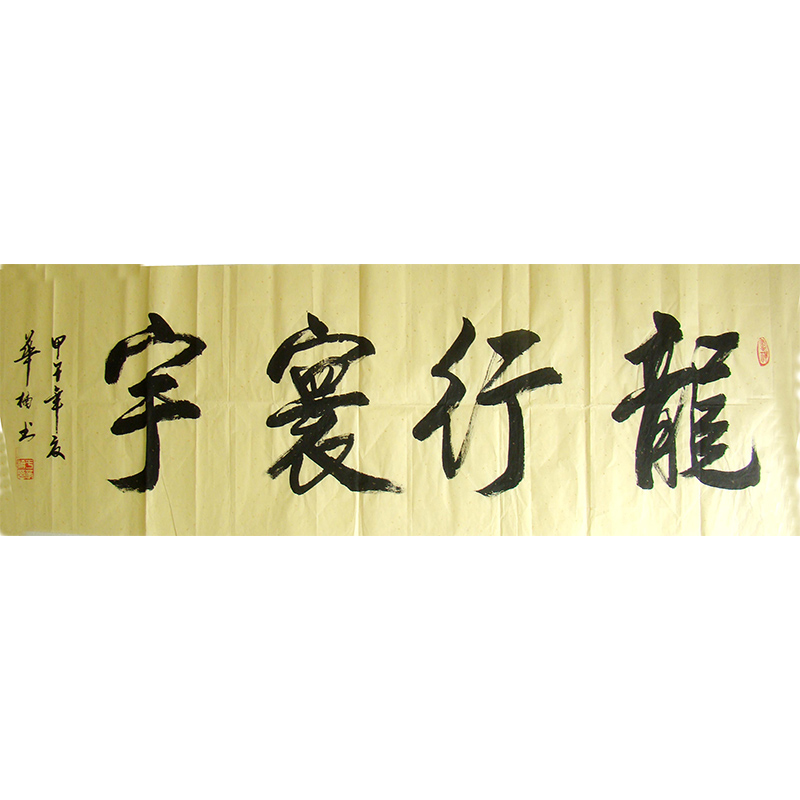 龍行寰宇
甲午年夏
華柏书